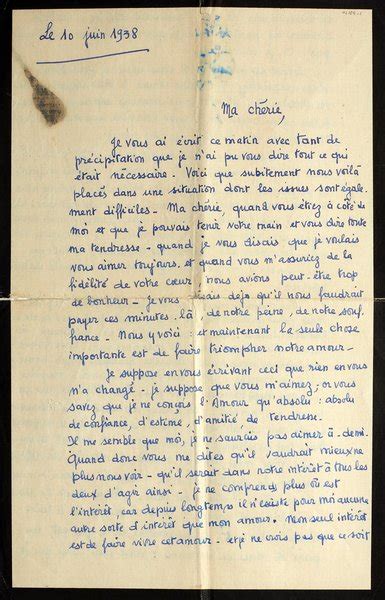 Le 10 juin 1938
Ma chérie,
Je vous ai écrit ce matin avec tant de
précipitation que je n'ai pu vous dire tout ce qui
était nécessaire. Voici que subitement nous voilà
placés dans une situation dont les issues sont égale
ment difficiles - Ma chérie, quand vous étiez à côté de
moi et que je pouvais tenir votre main et vous dire toute
ma tendresse - quand je vous disais que je voulais
vous aimer toujours, et quand vous m'assuriez de la
fidélité de votre coeur, nous avions peut-être trop
de bonheur - Je vous disais déjà qu'il nous faudrait
payer ces minutes là, de notre peine, de notre souf
france - Nous y voici : et maintenant la seule chose
importante est de faire triompher notre amour -
Je suppose en vous écrivant ceci que rien en vous
n'a changé - je suppose que vous m'aimez; or vous
savez que je ne conçois l'Amour qu'absolu : absolu
de confiance, d'estime, d'amitié, de tendresse.
Il me semble que moi, je ne saurais pas aimer à-demi.
Quand donc vous me dites qu'il vaudrait mieux ne
plus nous voir - qu'il serait dans notre intérêt à tous les
deux d'agir ainsi - je ne comprends plus où est
l'intérêt, car depuis longtemps il n'existe pour moi aucune
autre sorte d'intérêt que mon amour. Mon seul intérêt
est de faire vivre cet amour - et je ne crois pas que ce soit